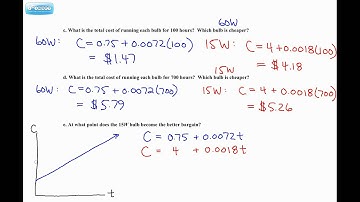 60W
c. What is the total cost of running each bulb for 100 hours? Which bulb is cheaper?
60W: C = 0.75 + 0.0072(100)
= $1.47
15W: C = 4 + 0.0018(100)
= $4.18
15W
d. What is the total cost of running each bulb for 700 hours? Which bulb is cheaper?
60W: C = 0.75 + 0.0072(700)
= $5.79
15W: C = 4 + 0.0018(700)
= $5.26
e. At what point does the 15W bulb become the better bargain?
C
t
C = 0.75 + 0.0072t
C = 4 + 0.0018t